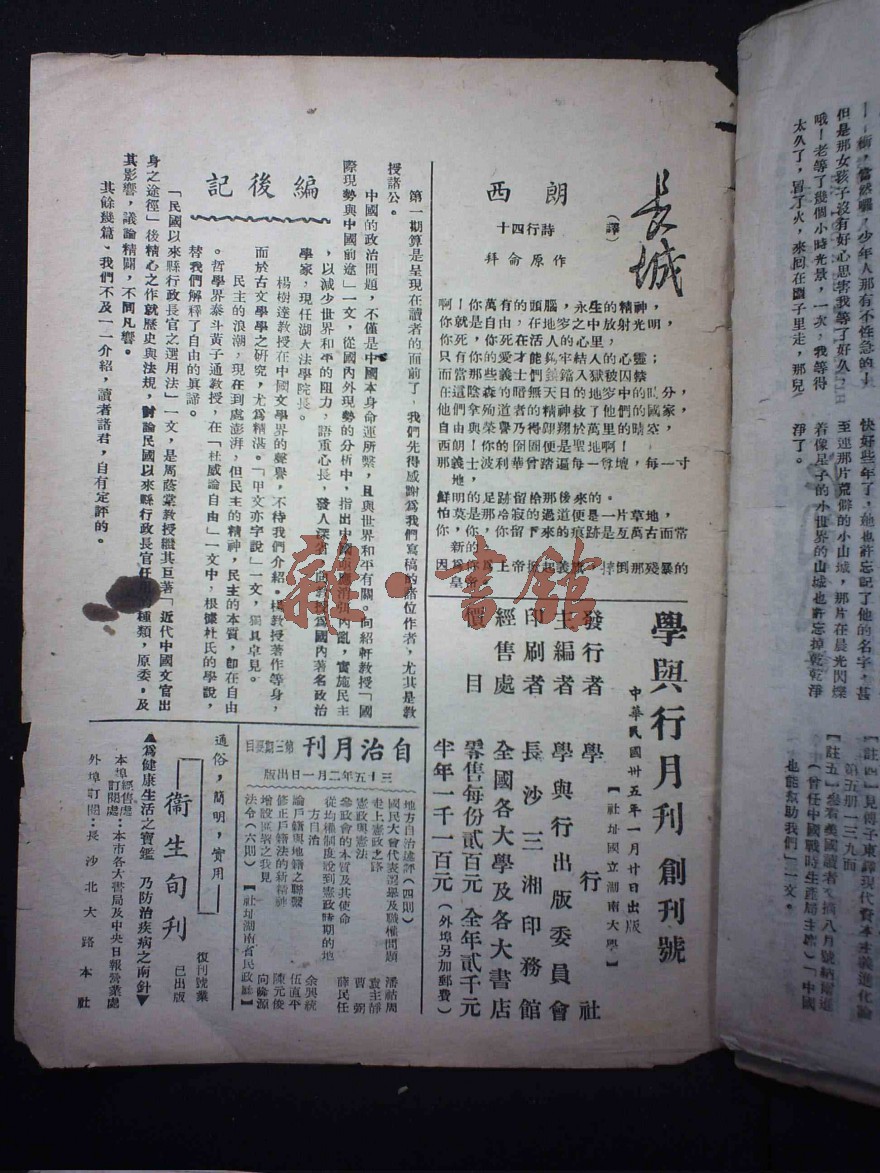 長城
(譯)
朗西
十四行詩
拜侖原作
啊!你萬有的頭腦,永生的精神,
你就是自由,在地窖之中放射光明,
你死,你死在活人的心里,
只有你的愛才能鎖牢結人的心靈;
而當那些義士們鋃鐺入獄被囚禁
在這陰森的暗無天日的地窖中的時分,
他們拿殉道者的精神救了他們的國家,
自由與榮譽乃得翱翔於萬里的晴空,
西朗!你的囹圄便是聖地啊!
那義士波利華曾踏遍每一聖壇,每一寸
地,
鮮明的足跡留給那後來的。
怕莫是那冷寂的過道便是一片草地,
你,你,你留下來的痕跡是亙萬古而常
新的!
因爲你爲上帝掀起義旗,摔倒那殘暴的
皇帝。
編後記
第一期算是呈現在讀者的面前了,我們先得感謝爲我們寫稿的諸位作者,尤其是教
授諸公。
中國的政治問題,不僅是中國本身命運所繫,且與世界和平有關。向紹軒教授「國
際現勢與中國前途」一文,從國內外現勢的分析中,指出中國亟應消弭內亂,實施民主
,以減少世界和平的阻力,語重心長,發人深省,向教授爲國內著名政治
學家,現任湖大法學院長。
楊樹達教授在中國文學界的聲譽,不待我們介紹。楊教授著作等身,
而於古文學學之研究,尤爲精湛。「甲文亦字說」一文,獨具卓見。
民主的浪潮,現在到處澎湃,但民主的精神,民主的本質,卽在自由
。哲學界泰斗黃子通教授,在「杜威論自由」一文中,根據杜氏的學說,
替我們解釋了自由的眞諦。
「民國以來縣行政長官之選用法」一文,是周蔭棠教授繼其巨著「近代中國文官出
身之途徑」後精心之作就歷史與法規,討論民國以來縣行政長官任用的種類,原委,及
其影響,議論精闢,不同凡響。
其餘幾篇、我們不及一一介紹,讀者諸君,自有定評的。
學與行月刊 創刊號
中華民國卅五年一月廿日出版
發行者 學行社
【社址國立湖南大學】
主編者 學與行出版委員會
印刷者 長沙三湘印務館
經售處 全國各大學及各大書店
價目 零售每份貳百元 全年貳千元
半年一千一百元(外埠另加郵費)
自治月刊 第三期要目
三十五年二月一日出版
地方自治述評(四則)
國民大會代表選舉及職權問題 潘祜周
走上憲政之路 袁主靜
憲政與憲法 曹弼
參政會的本質及其使命 薛民任
從均權制度說到憲政時期的地
方自治 余與統
論戶籍與地籍之聯繫 伍直平
修正戶籍法的新精神 陳元俊
增設區署之我見 向綸源
法令(六則) 【社址湖南省民政廳】
通俗,簡明,實用
衞生旬刊
復刊號業
已出版
▲爲健康生活之寶鑑 乃防治疾病之南針▼
本埠經售處訂閱處:本市各大書局及中央日報營業處
外埠訂閱:長沙北大路本社
雜·書館
但是那女孩子沒有好心思害我等了好久,
哦!老等了幾個小時光景,一次,我等得
太久了,冒了火,來回在園子里走,那兒
快好些年了,她也許忘記了他的名字,甚
至連那片荒僻的小山城,那片在晨光閃爍
着像星子的小世界的山城也許忘掉乾乾淨
淨了。
【註四】見傅子東譯現代資本主義進化論
第五册一三九面
(曾任中國戰時生產局主席)「中國
也能幫助我們」一文。